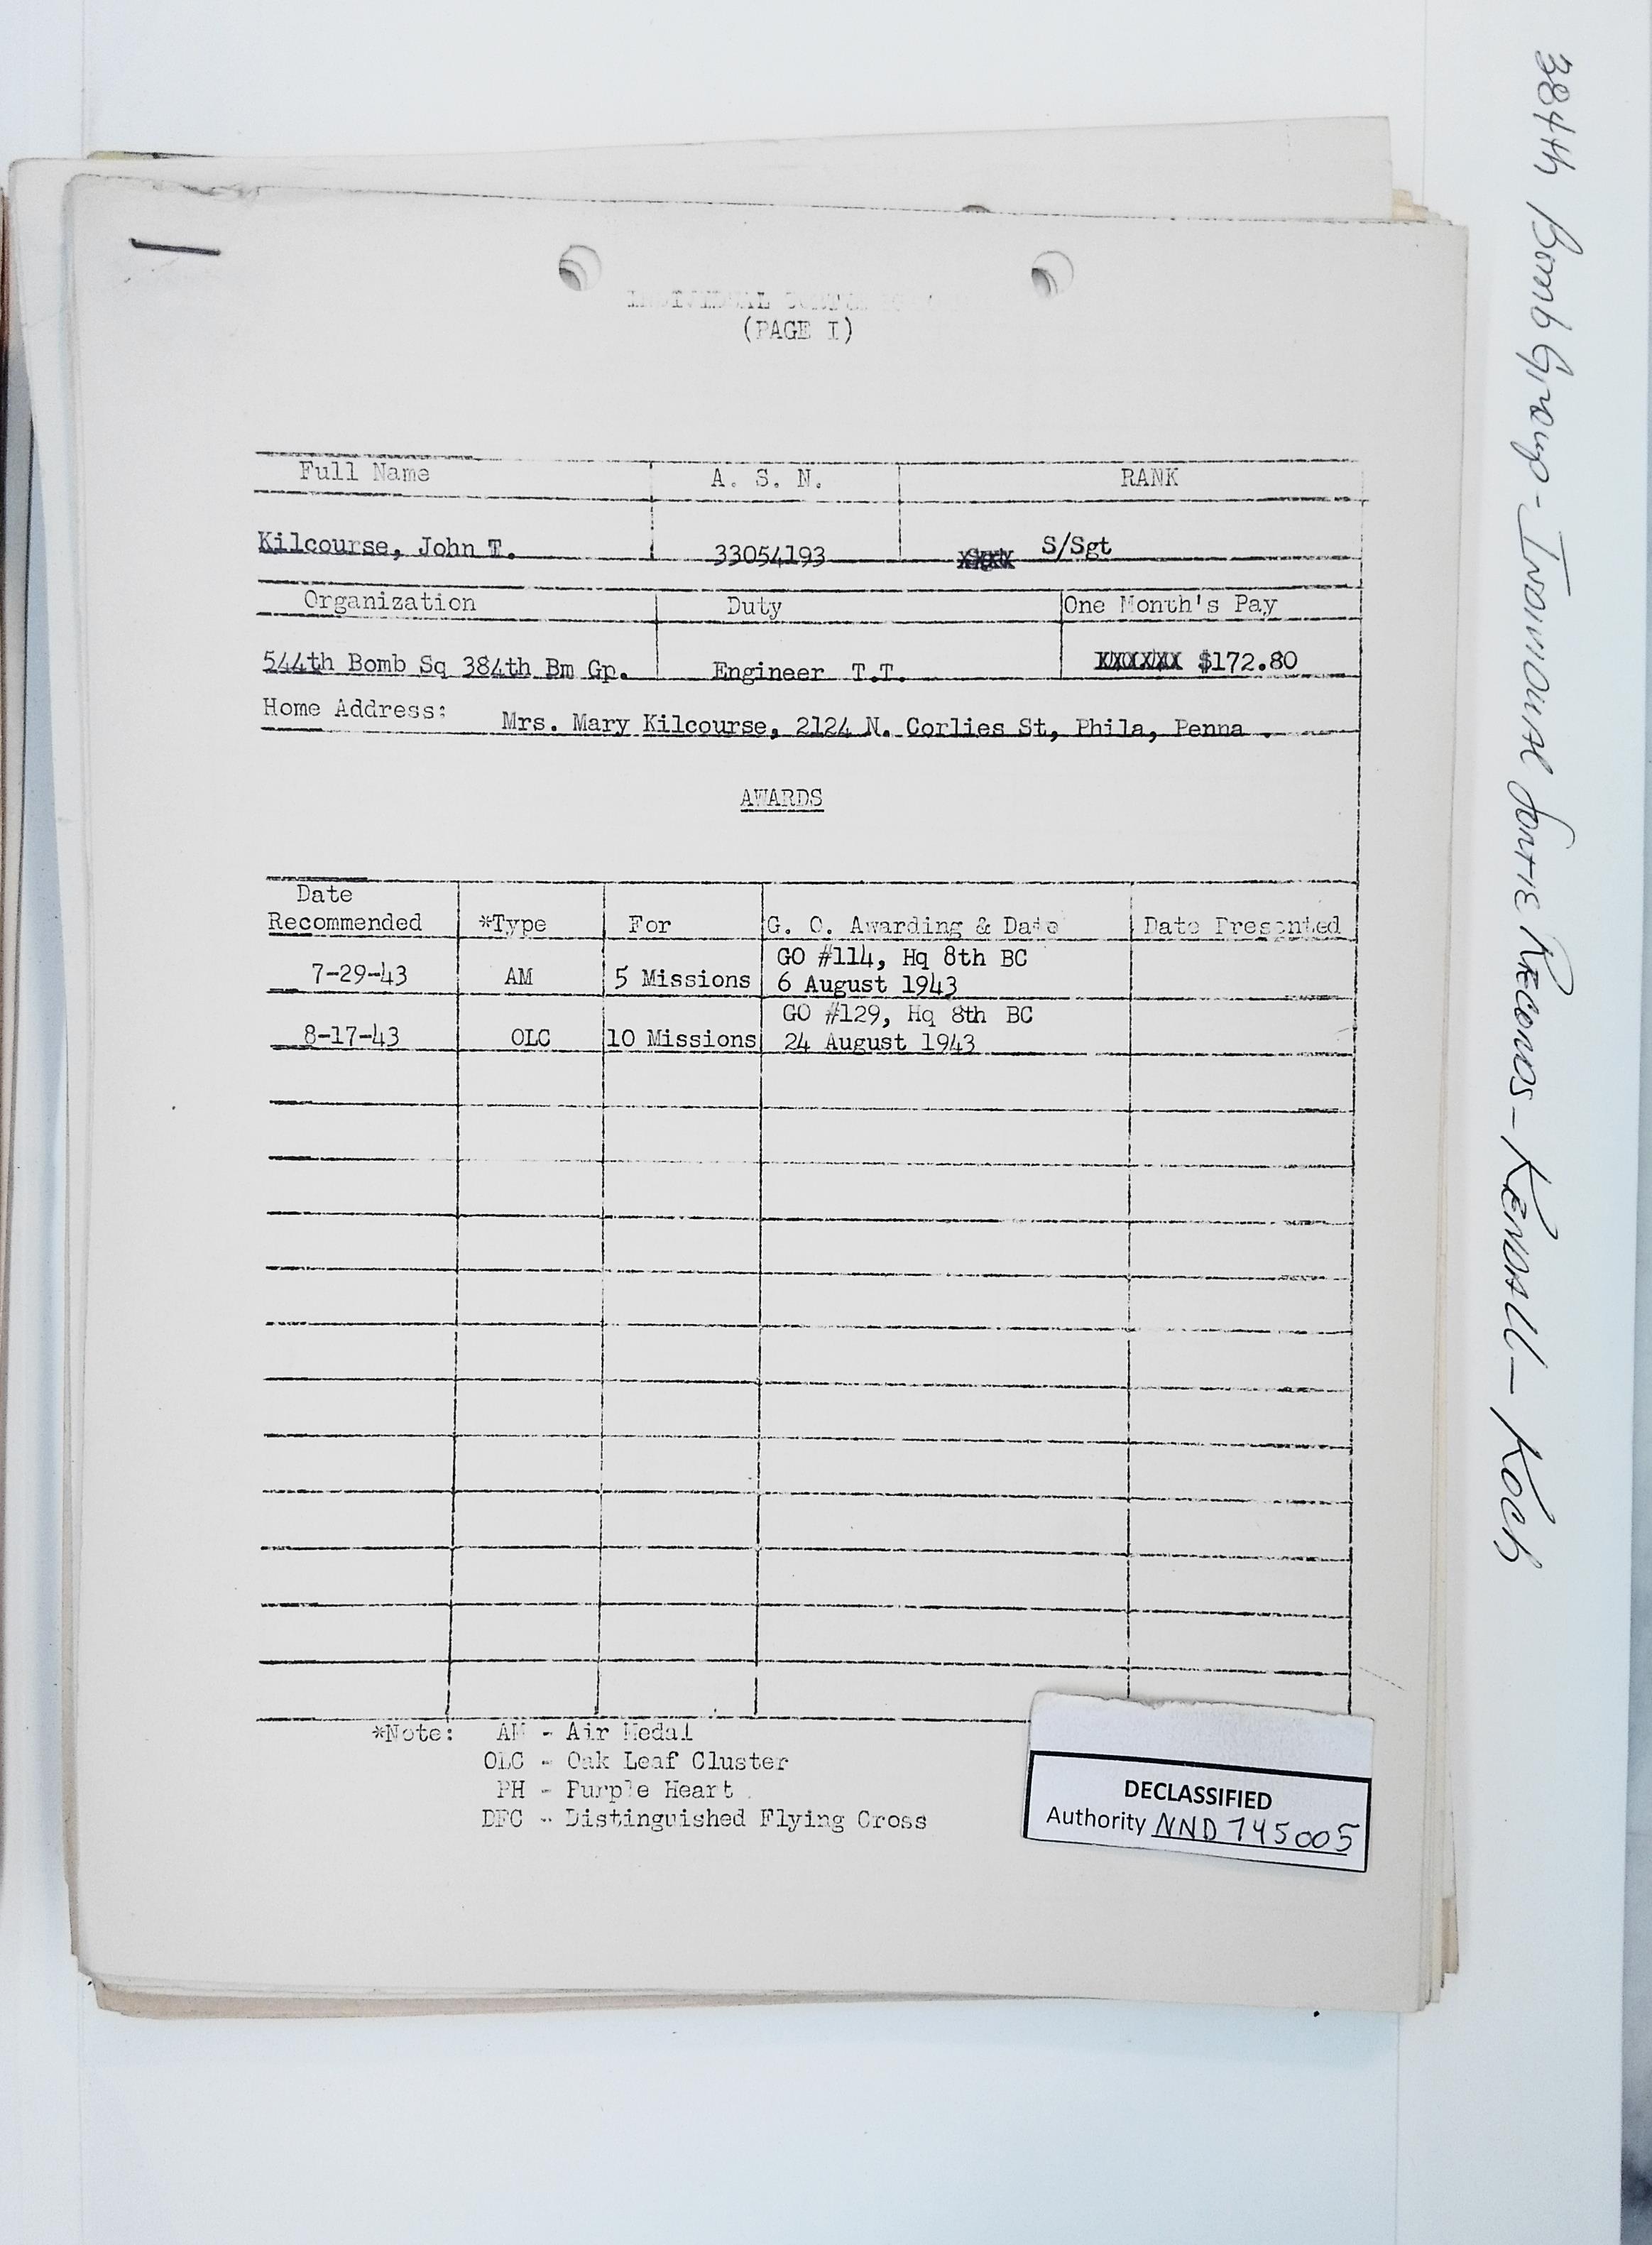 INDIVIDUAL SORTIE
(PAGE I)
Full Name A. S. N. RANK
Kilcourse, John T. 33054193 S/Sgt
Organization Duty One Month's Pay
544th Bomb Sq 384th Bm Gp. Engineer T.T. $172.80
Home Address: Mrs. Mary Kilcourse, 2124 N. Corlies St, Phila, Penna .
AWARDS
Date
Recommended *Type For G. O. Awarding & Date Date Presented
GO #114, Hq 8th BC
7-29-43 AM 5 Missions 6 August 1943
GO #129, Hq 8th BC
8-17-43 OLC 10 Missions 24 August 1943
*Note: AM - Air Medal
OLC - Oak Leaf Cluster
PH - Purple Heart
DFC - Distinguished Flying Cross
DECLASSIFIED
Authority NND 745005
384th Bomb Group - Individual Sortie Records - Kendall - Koch